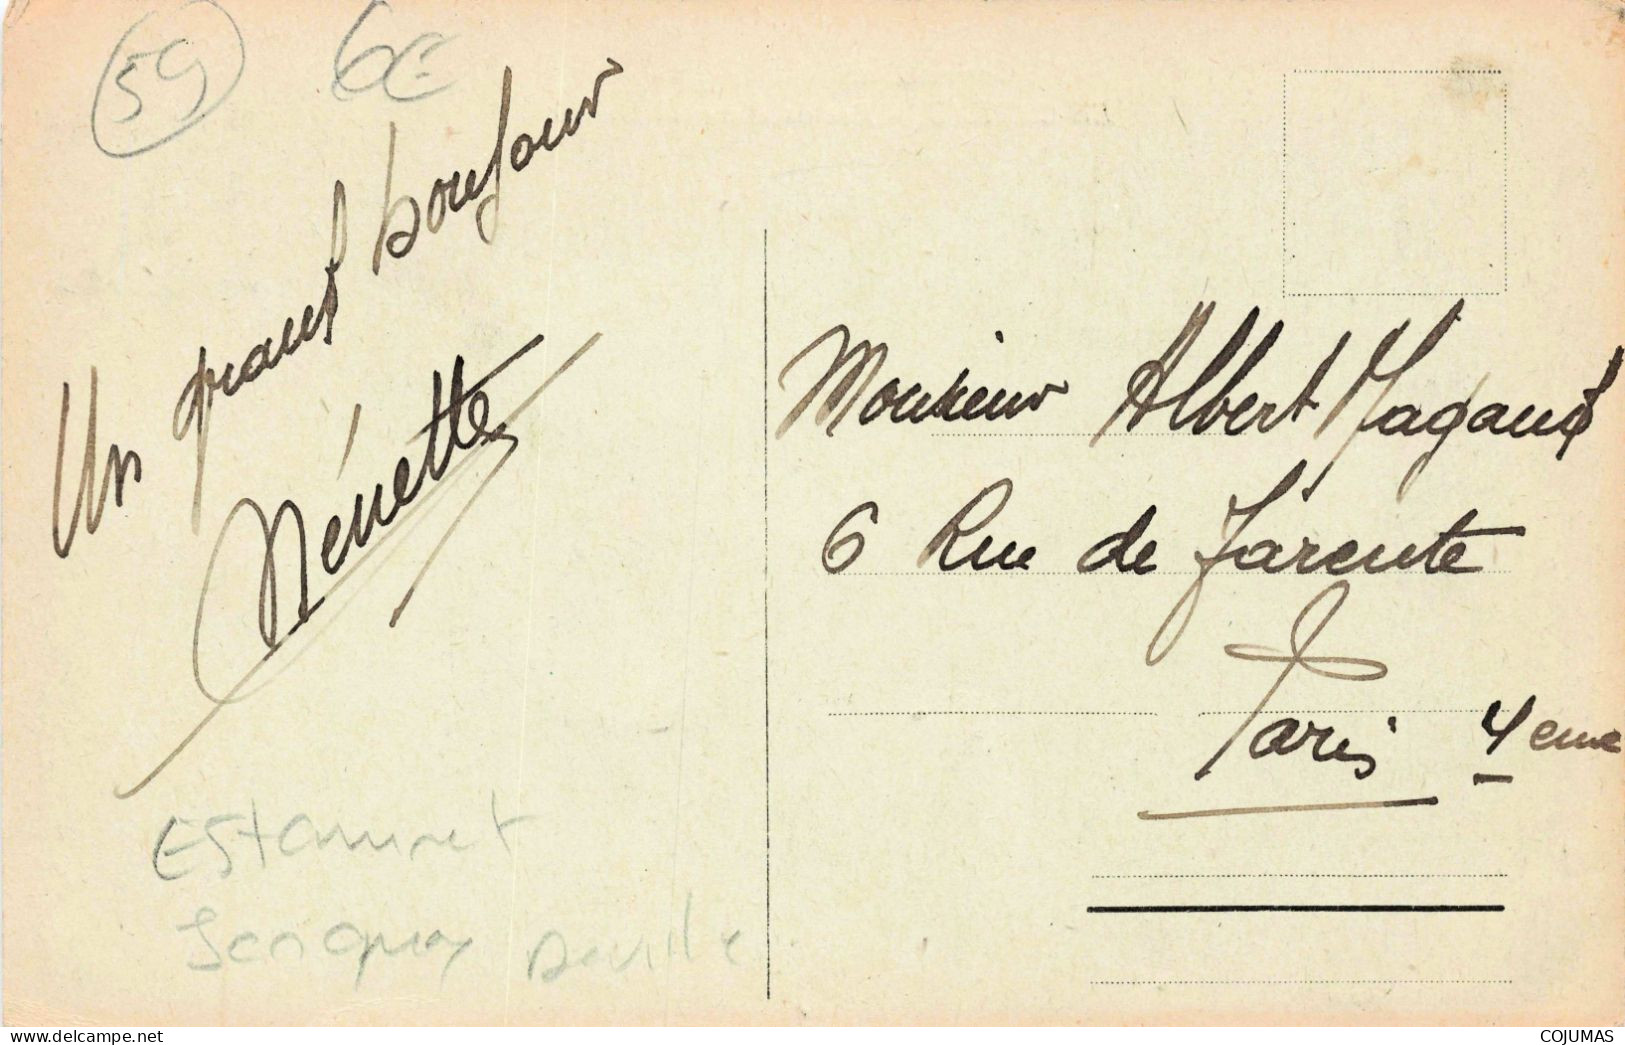 59
6€
Un grand bonjour
Nénette
Monsieur Albert Magaud
6 Rue de Jarente
Paris 4eme
Estaminet
Deville
www.delcampe.net
COJUMAS